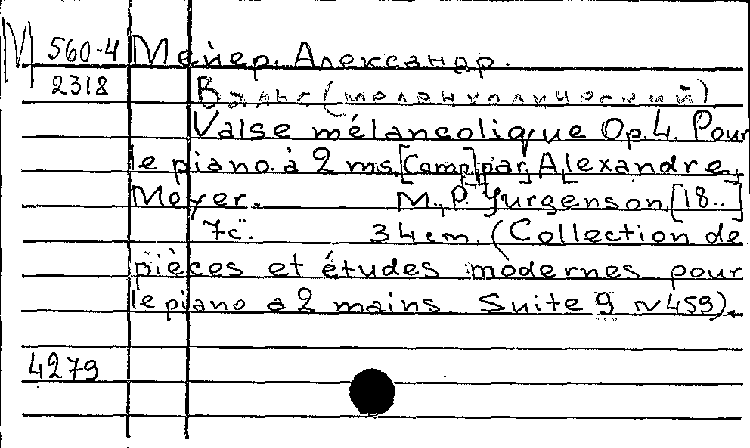 М 560-4 Мейер, Александр.
2318 Вальс (меланхолический)
Valse mélancolique Op. 4. Pour
le piano à 2 ms. [Comp.] par Alexandre
Meyer. M., P. Jurgenson, [18..]
7c. 34 cm. (Collection de
pièces et études modernes pour
le piano a 2 mains. Suite 9 N 459).
4279